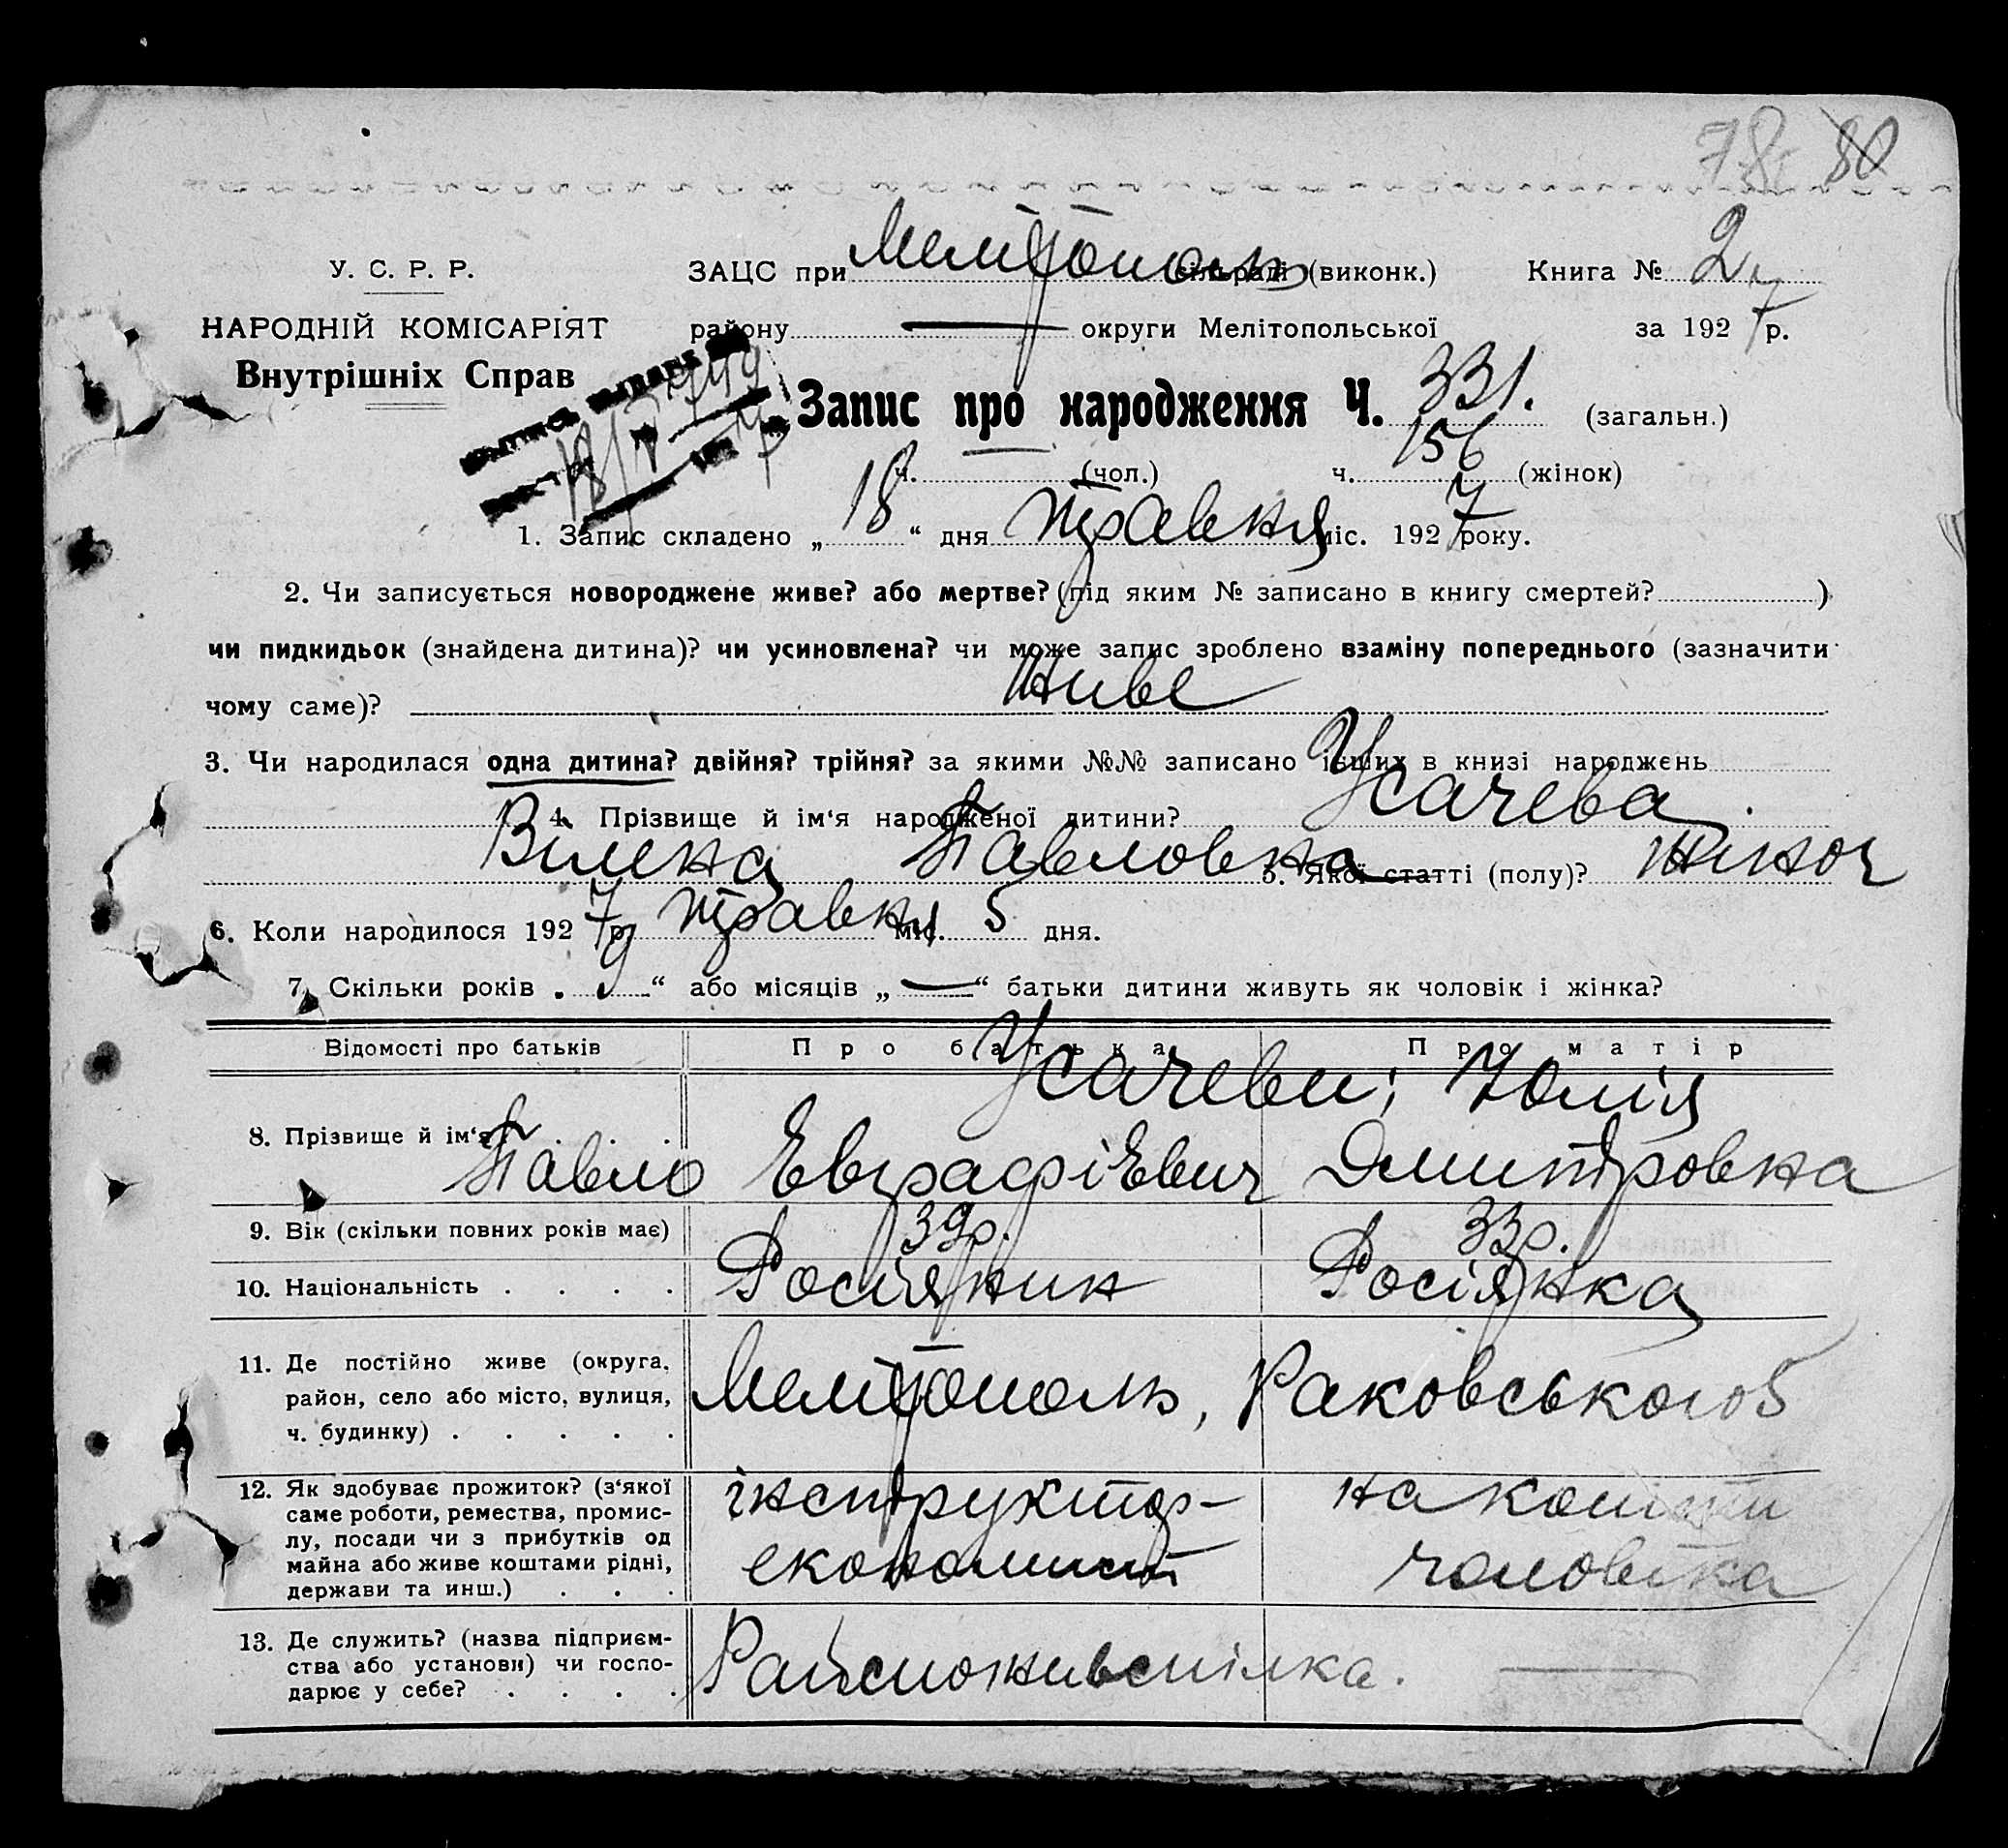 78 80
У. С. Р. Р.
НАРОДНІЙ КОМІСАРІЯТ
Внутрішніх Справ
ЗАЦС при Мелітополь сільраді (виконк.) Книга № 2
району — округи Мелітопольської за 1927 р.
Запис про народження Ч. 331. (загальн.)
ч. (чол.) ч. 156 (жінок)
1. Запис складено „18“ дня травня міс. 1927 року.
2. Чи записується новороджене живе? або мертве? (під яким № записано в книгу смертей? )
чи пидкидьок (знайдена дитина)? чи усиновлена? чи може запис зроблено взаміну попереднього (зазначити
чому саме)? Живе
3. Чи народилася одна дитина? двійня? трійня? за якими №№ записано інших в книзі народжень
4. Прізвище й ім‘я народженої дитини? Усачева
Вілена Павловна 5. Якої статті (полу)? жіноч
6. Коли народилося 1927 р. травня міс. 5 дня.
7. Скільки років „9“ або місяців „—“ батьки дитини живуть як чоловік і жінка?
Відомості про батьків Про батька Про матір
8. Прізвище й ім‘я . . . Усачеви; Юлія
Павло Евграфіевич Дмитровна
9. Вік (скільки повних років має) 39р. 33р.
10. Національність . . . . Росіянин Росіянка
11. Де постійно живе (округа,
район, село або місто, вулиця,
ч. будинку) . . . . .
Мелітополь, Раковського 5
12. Як здобуває прожиток? (з‘якої
саме роботи, ремества, промис-
лу, посади чи з прибутків од
майна або живе коштами рідні,
держави та инш.) . . .
інструктор- на кошти
економист чоловіка
13. Де служить? (назва підприєм-
ства або установи) чи госпо-
дарює у себе? . . . .
Райспоживспілка. —